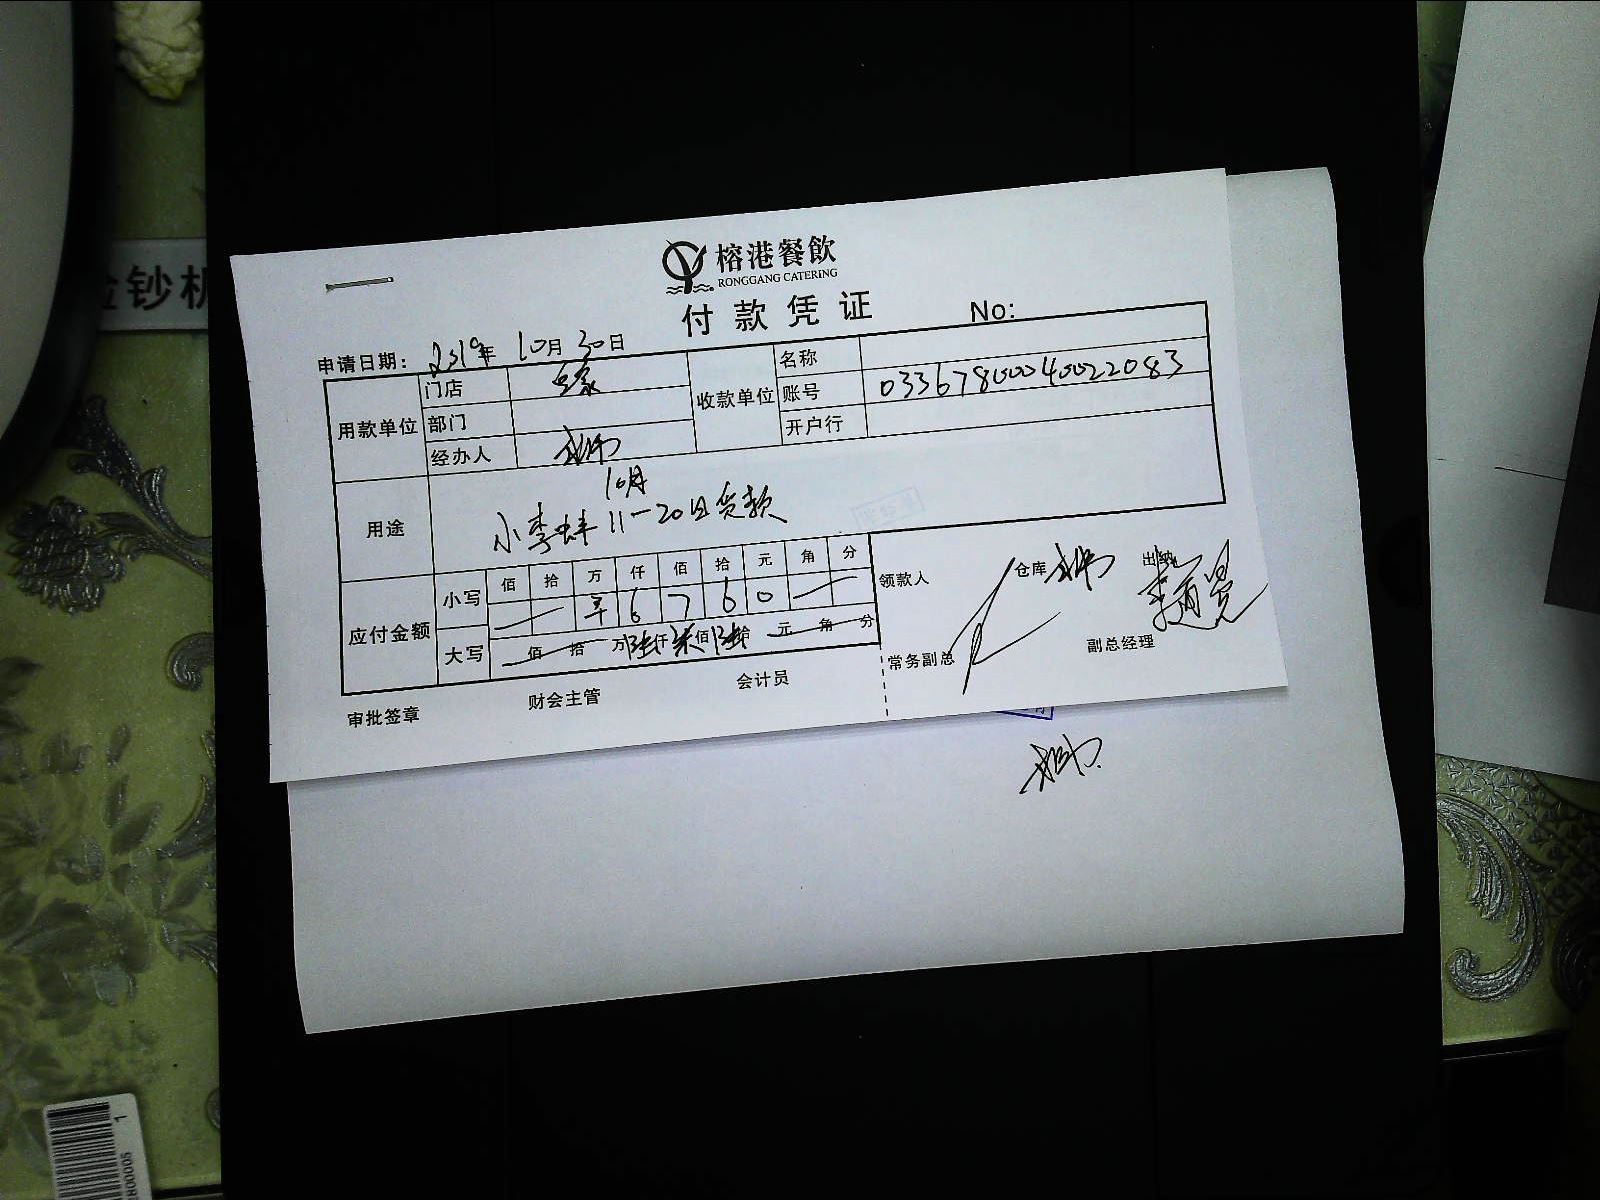 榕港餐飲
RONGGANG CATERING
付款凭证
No:
申请日期: 2019年 10月 30日
用款单位 门店
部门
经办人
收款单位 名称
账号 03367800040022083
开户行
用途 10月
小李蚌 11-20日货款
应付金额 小写 佰 拾 万 仟 佰 拾 元 角 分
¥ 6 7 6 0
大写 佰 拾 万 陆仟 柒佰 陆拾 元 角 分
领款人 仓库 出纳
常务副总 副总经理
审批签章 财会主管 会计员
验钞机